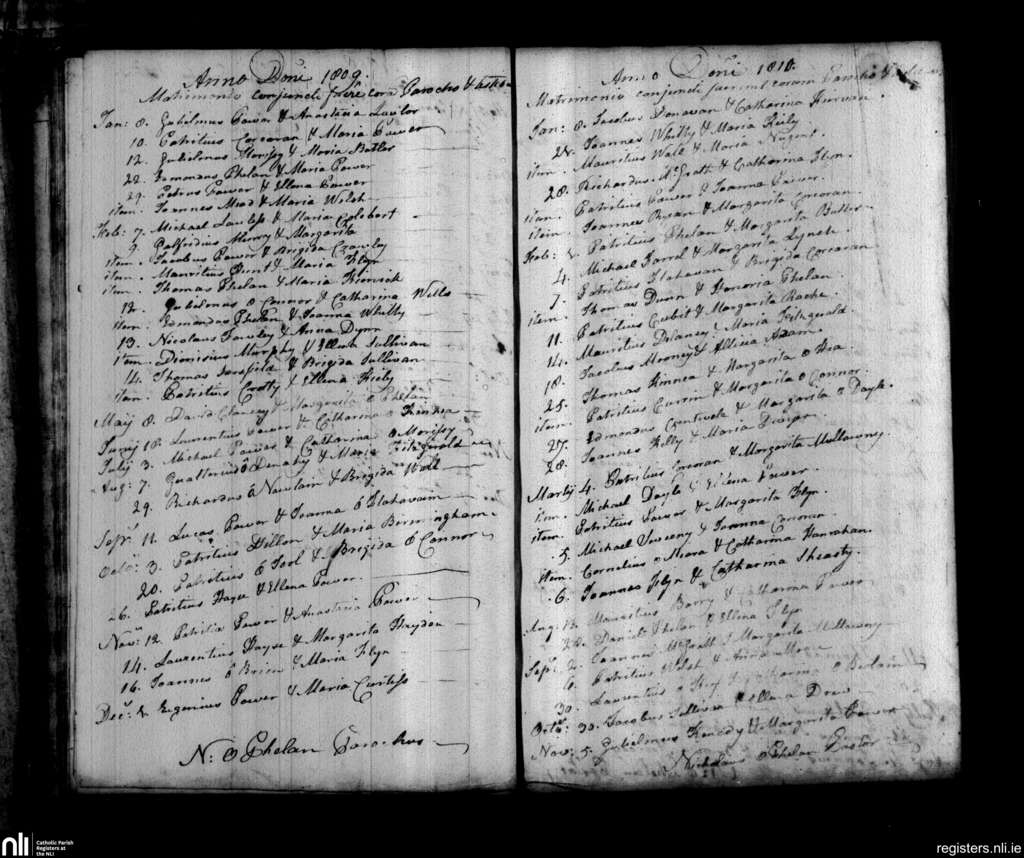 Anno Doñi 1809.
Matrimonio conjuncti fuere cora Parocho & testibus
Jan: 8. Gulielmus Power & Anastatia Lawlor
10. Patritius Corcoran & Maria Power
12. Gulielmus & Maria Butler
22. Edmondus Phelan & Maria Power
29. Petrus Power & Ellena Power
item. Joannes Mead & Maria Welsh
Feb: 7. Michael Lawless & Maria Colebert
9. Galfridius Merry & Margarita
item. Jacobus Power & Brigida Crawley
item. Mauritius Hunt & Maria Flyn
item. Thomas Phelan & Maria Kierwick
12. Gulielmus O Connor & Catharina Wells
item. Edmondus Phelan & Joanna Whitty
13. Nicolaus Fawley & Anna Dynn
item. Dionisius Murphy & Ellena Sullivan
14. Thomas Sarsfield & Brigida Sullivan
item. Patritius Crotty & Ellena Kiely
Maij 8. David Clancey & Margarita O Phelan
Junij 18. Laurentius Power & Catharina O Kinkea
Julij 3. Michael Power & Catharina O Morissy
Aug: 7. Gualterius O Lenahy & Maria Fitzgerald
29. Richardus O Nowlan & Brigida Wall
Sepr. 11. Lucas Power & Joanna O Flahavan
Octr: 3. Patritius Dillon & Maria Birmingham
20. Patritius O Tool & Brigida O Connor
26. Patritius Hayse & Ellena Power.
Novr: 12. Patritius Power & Anastatia Power
14. Laurentius Hayse & Margarita Hayden
16. Joannes O Brien & Maria Flyn
Decr: 2. Eugenius Power & Maria Curtiss
N: O Phelan Parochus
Anno Doñi 1810.
Matrimonio conjuncti fuerunt coram Parocho &
Jan: 8. Jacobus Donavan & Catharina Kirwan
22. Joannes Whitty & Maria Kiely
item. Mauritius Wall & Maria Nugent
28. Richardus McGrath & Catharina Flyn.
item. Patritius Power & Joanna Power.
item. Joannes Ryan & Margarita Corcoran.
Feb: 2. Patritius Phelan & Margarita Butler
4. Michael Farrol & Margarita Lynch.
7. Patritius Flahavan & Brigida Corcoran
item. Thomas Dunn & Honoria Phelan
11. Patritius Cubit & Margarita Roche
14. Mauritius Delaney & Maria Fitzgerald.
18. Jacobus Mooney & Alicia Adam.
25. Thomas Kinnea & Margarita O Hea.
item. Patritius Curtin & Margarita O Connor.
27. Edmondus & Margarita O Doyle.
28. Joannes Kelly & Maria
Martij 4. Patritius Corcoran & Margarita Mullowny.
item. Michael Doyle & Ellena Power.
item. Patritius Power & Margarita Flyn.
5. Michael Sweeny & Joanna Connor.
item. Cornelius O Meara & Catharina Hanrahan.
6. Joannes Flyn & Catharina Sheasty.
Aug: 13. Mauritius Barry & Catharina Power
28. Daniel Phelan & Ellena Flyn
Sepr. 2. Joannes McGrath & Margarita Mullowny
6. Patritius & Anna
30. Laurentius O &
Octr: 30. Jacobus Sullivan & Ellena Drew
Nov: 5. Gulielmus Kenedy & Margarita Power
Nicholaus O Phelan Pastor
nli
Catholic Parish
Registers at
the NLI
registers.nli.ie